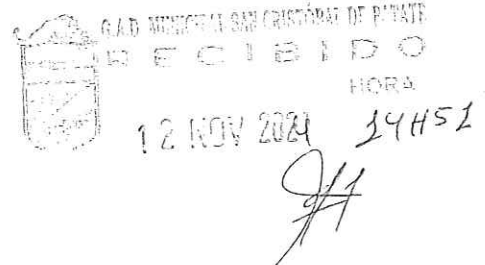 G.A.D. MUNICIPAL SAN CRISTÓBAL DE PATATE
RECIBIDO
HORA
12 NOV 2021 14H51